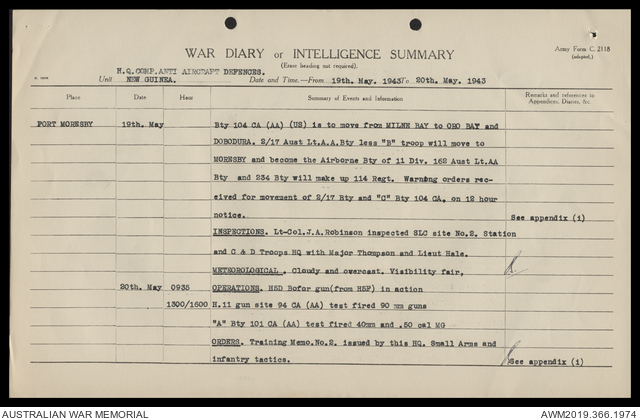 WAR DIARY or INTELLIGENCE SUMMARY
Army Form C. 2118
(adapted).
(Erase heading not required).
H.Q.COMP.ANTI AIRCRAFT DEFENCES.
Unit NEW GUINEA. Date and Time.—From 19th. May. 1943 To 20th. May. 1943
Place Date Hour Summary of Events and Information Remarks and references to Appendices, Diaries, &c.
PORT MORESBY 19th. May Bty 104 CA (AA) (US) is to move from MILNE BAY to ORO BAY and
DOBODURA. 2/17 Aust Lt.A.A.Bty less "B" troop will move to
MORESBY and become the Airborne Bty of 11 Div. 162 Aust Lt.AA
Bty and 234 Bty will make up 114 Regt. Warning orders rec-
eived for movement of 2/17 Bty and "C" Bty 104 CA, on 12 hour
notice. See appendix (i)
INSPECTIONS. Lt-Col.J.A.Robinson inspected SLC site No.2. Station
and C & D Troops HQ with Major Thompson and Lieut Hale.
METEOROLOGICAL . Cloudy and overcast. Visibility fair,
20th. May 0935 OPERATIONS. H5D Bofor gun(from H5F) in action
1300/1600 H.11 gun site 94 CA (AA) test fired 90 mm guns
"A" Bty 101 CA (AA) test fired 40mm and .50 cal MG
ORDERS. Training Memo.No.2. issued by this HQ. Small Arms and
infantry tactics. See appendix (i)
AUSTRALIAN WAR MEMORIAL AWM2019.366.1974